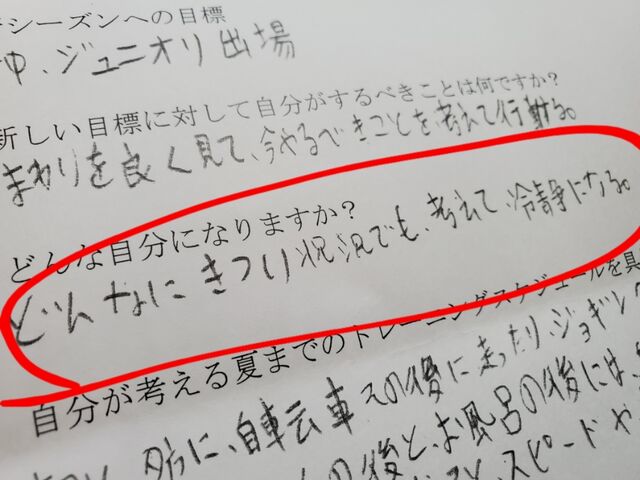 シーズンへの目標
中、ジュニオリ出場
新しい目標に対して自分がするべきことは何ですか?
まわりを良く見て、今やるべきことを考えて行動する。
どんな自分になりますか?
どんなにきつい状況でも、考えて、冷静になる。
自分が考える夏までのトレーニングスケジュールを具
夕方に、自転車その後に走ったり、ジョギング
の後と、お風呂の後には、
スピードや